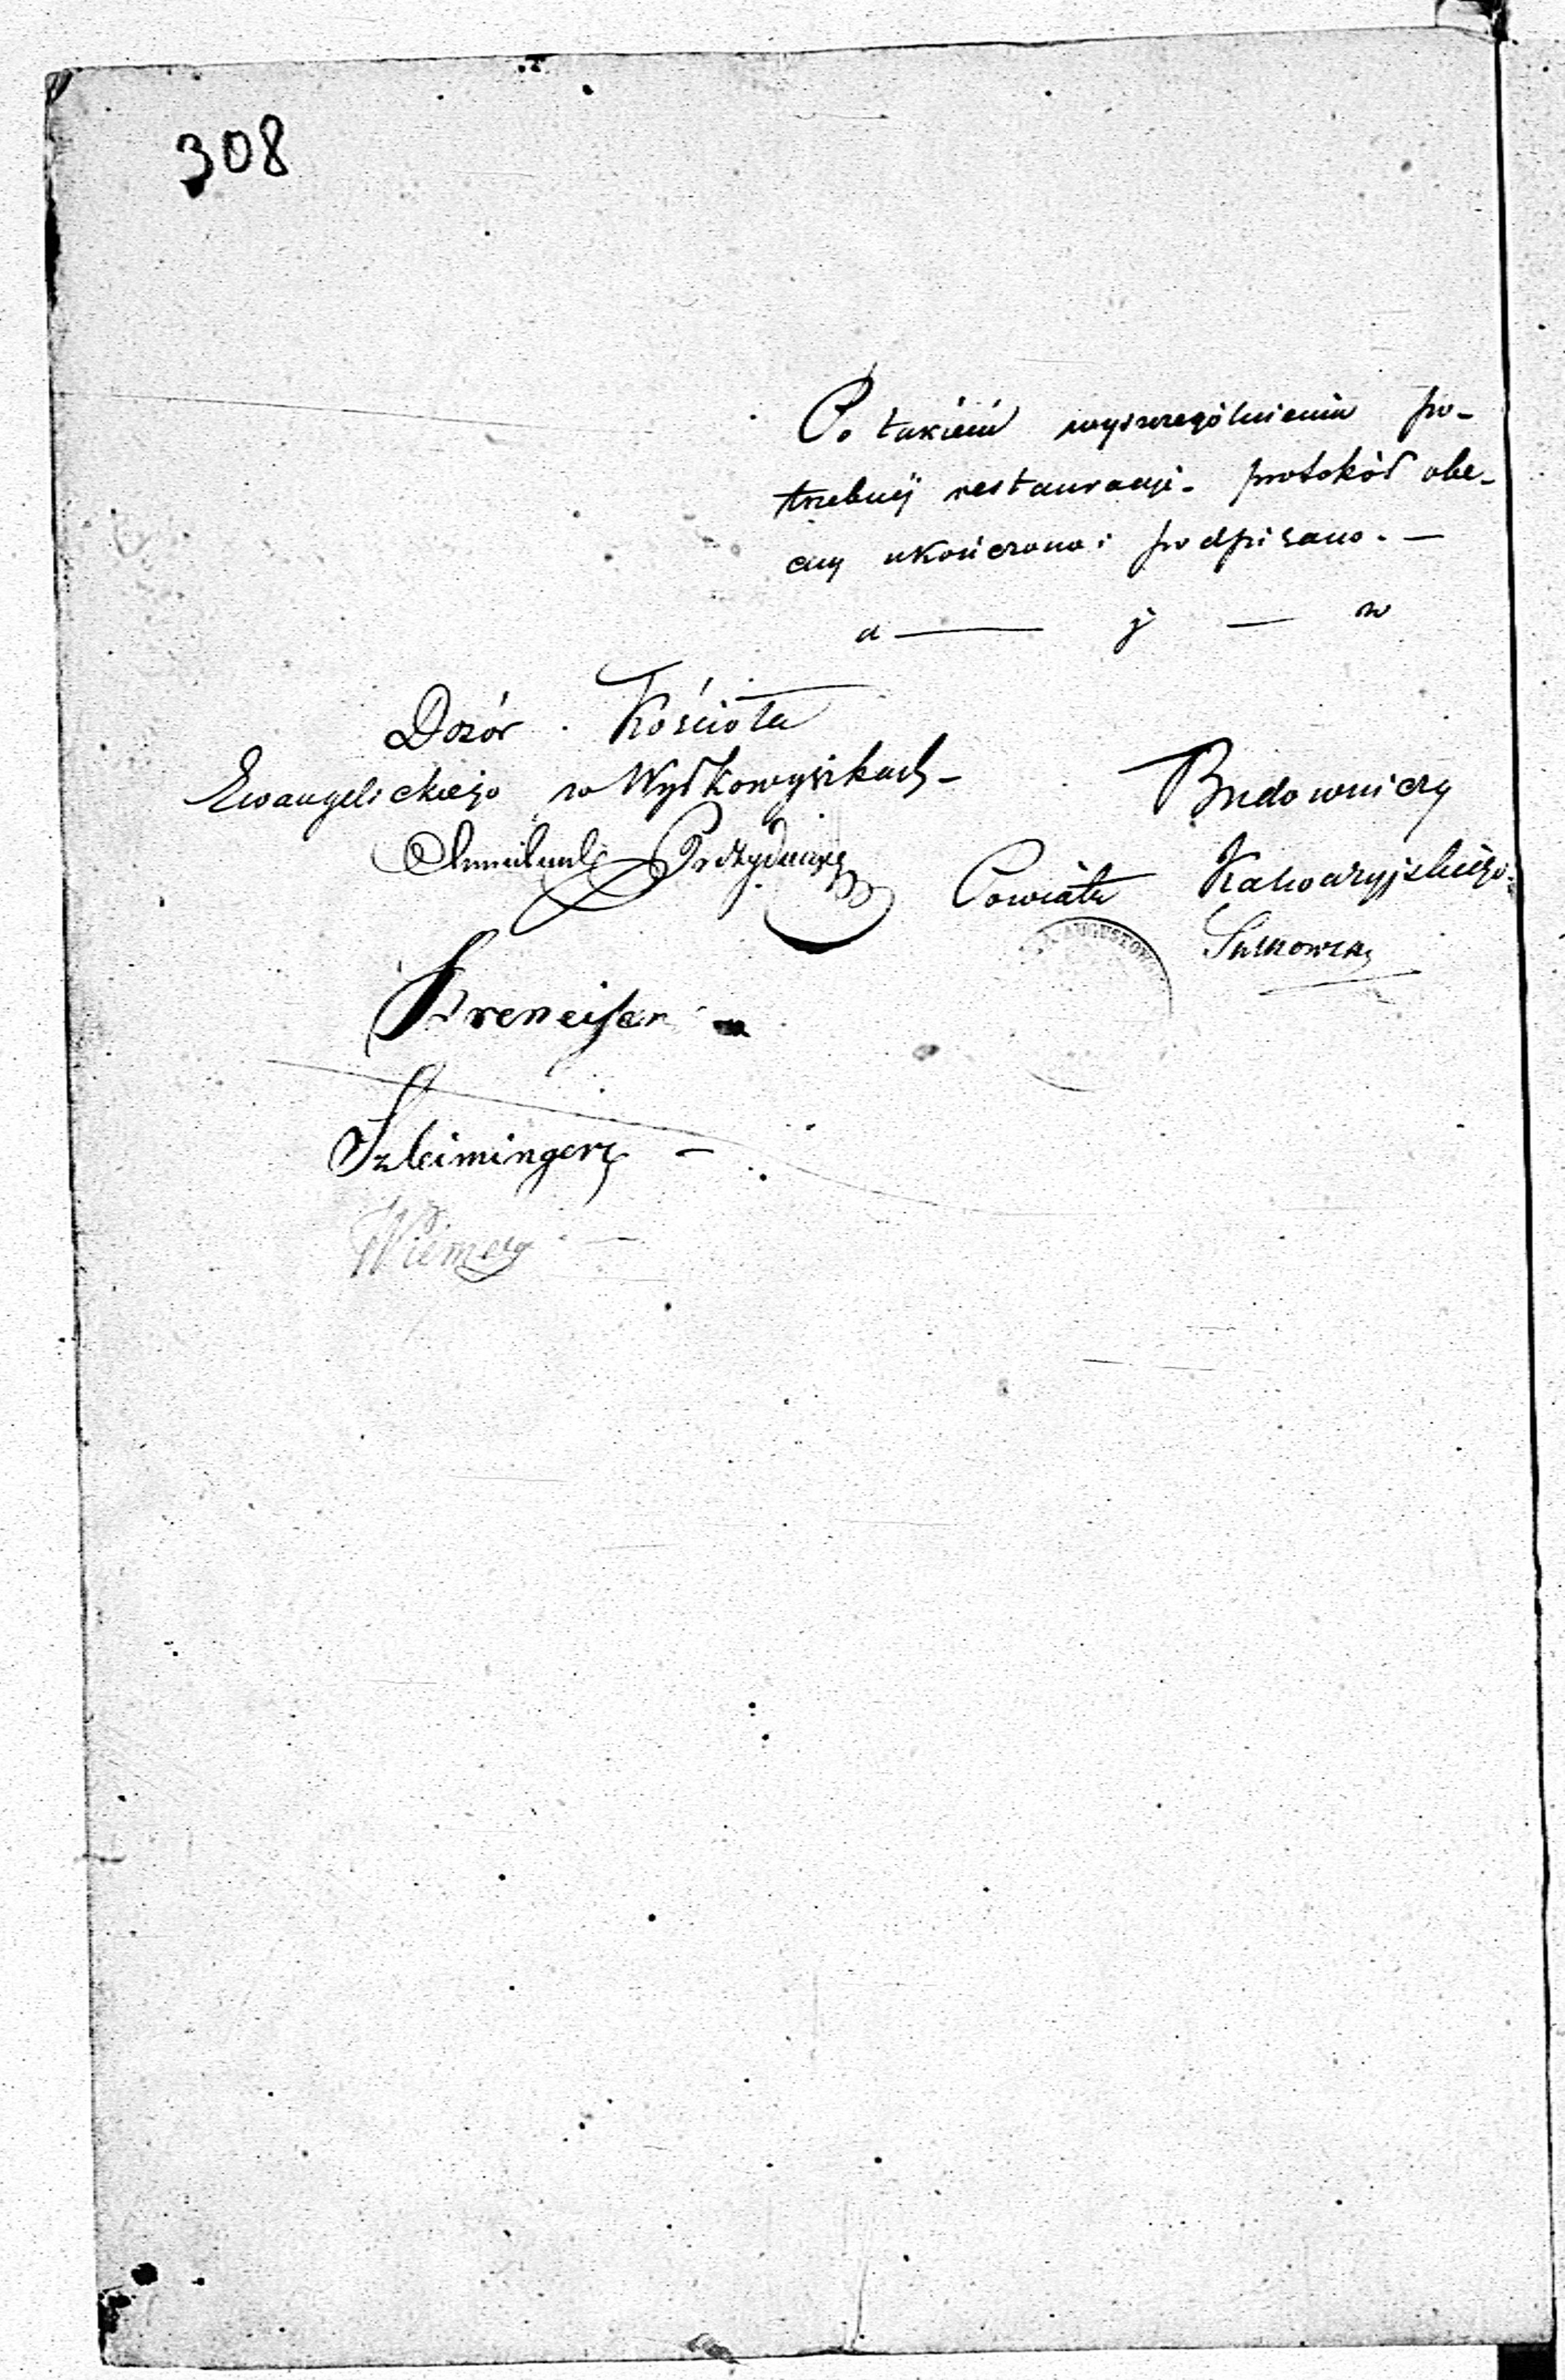 308
Po takiém wyszczególnieniu po-
trzebnéj restauracyi - protokół obe-
cny ukończono i podpisano. —
a — j — w
Dozór Kościoła
Ewangelickiego w Wyłkowyszkach -
Prezydujący
Budowniczy
Powiatu Kalwaryjskiego
AUGUSTOW
Kreneisen
Szleimingerz -
Wiemer